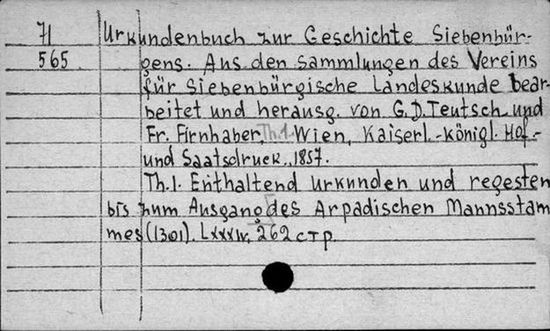 71 Urkundenbuch zur Geschichte Siebenbür-
565 gens. Aus den Sammlungen des Vereins
für Siebenbürgische Landeskunde bear-
beitet und herausg. von G.D.Teutsch und
Fr. Firnhaber, Th.1. Wien, Kaiserl.-königl. Hof-
und Saatsdruck., 1857.
Th.1. Enthaltend urkunden und regesten
bis zum Ausgang des Arpadischen Mannsstam
mes (1301). LXXXIV, 262 стр.